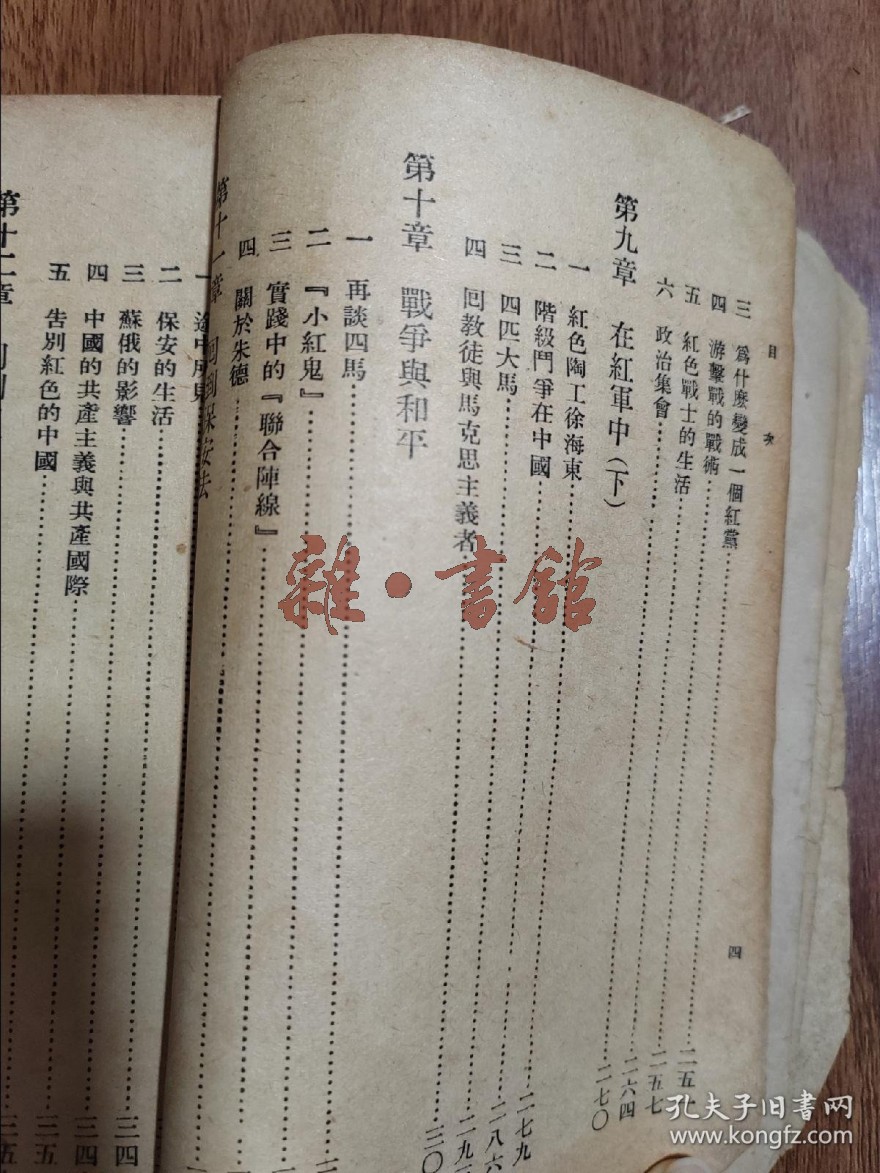 目次
三 爲什麼變成一個紅黨
四 游擊戰的戰術
五 紅色戰士的生活 二五七
六 政治集會 二六四
第九章 在紅軍中(下) 二七〇
一 紅色陶工徐海東
二 階級鬥爭在中國 二七九
三 四匹大馬 二八六
四 回教徒與馬克思主義者
第十章 戰爭與和平
一 再談四馬
二 『小紅鬼』
三 實踐中的『聯合陣線』
四 關於朱德
第十一章 回到保安去
一 途中所見
二 保安的生活
三 蘇俄的影響
四 中國的共產主義與共產國際
五 告別紅色的中國
第十二章
四
雜·書館
孔夫子旧书网
www.kongfz.com